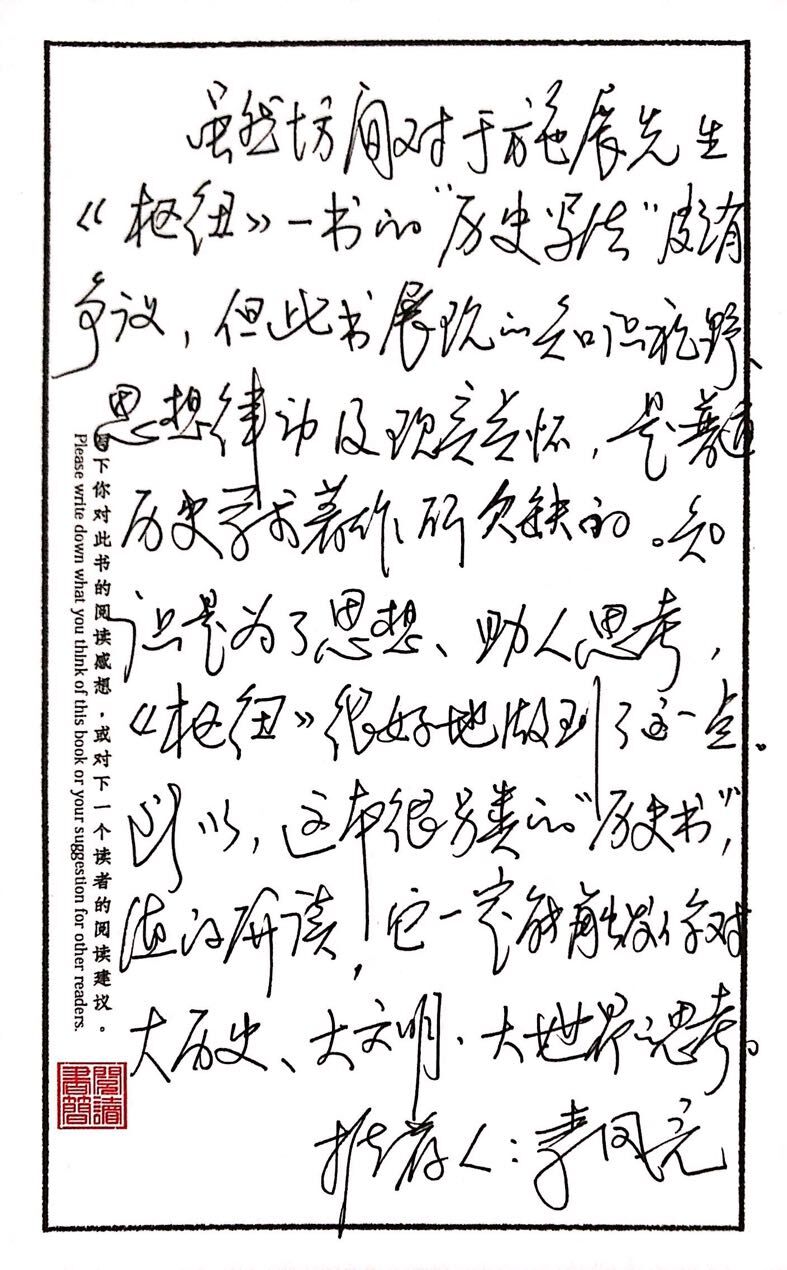 虽然坊间对于施展先生
《枢纽》一书的“历史写法”颇有
争议，但此书展现的知识视野、
思想律动及现实关怀，是普通
历史学术著作所欠缺的。知
识是为了思想、助人思考，
《枢纽》很好地做到了这一点。
所以，这本很另类的“历史书”，
值得研读，它一定能触发你对
大历史、大文明、大世界之思考。
推荐人：李凤亮
写下你对此书的阅读感想，或对下一个读者的阅读建议。
Please write down what you think of this book or your suggestion for other readers.
閱讀書簡